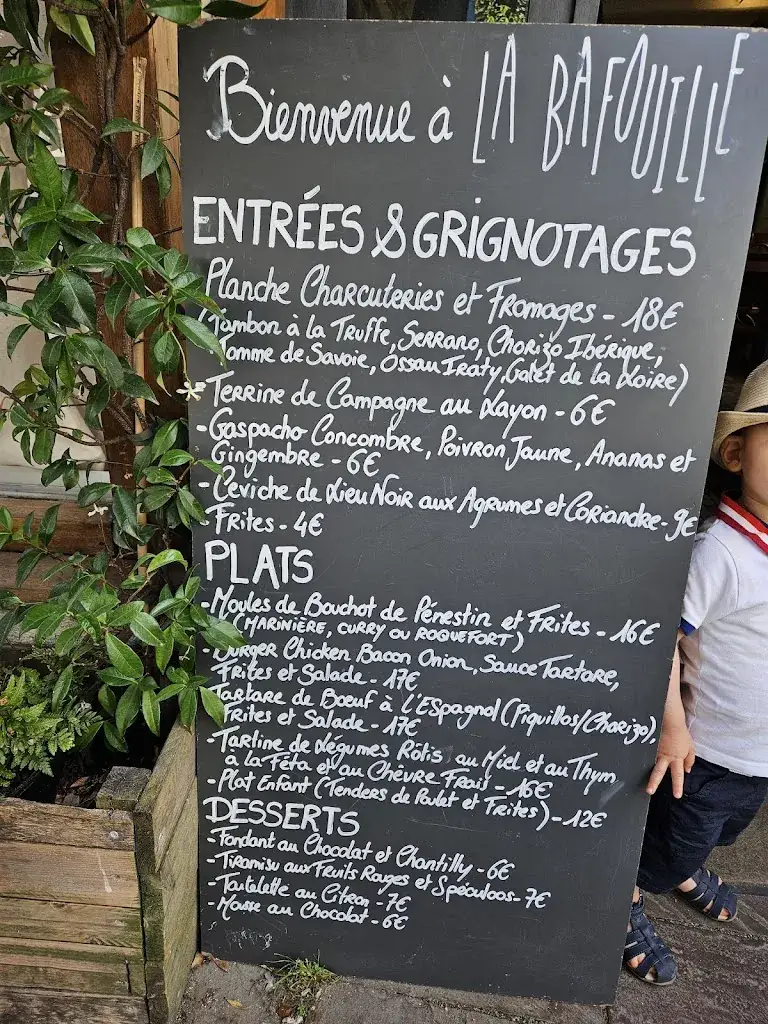 Bienvenue à LA BAFOUILLE
ENTRÉES & GRIGNOTAGES
Planche Charcuteries et Fromages - 18€
(Jambon à la Truffe, Serrano, Chorizo Ibérique,
Tomme de Savoie, Ossau Iraty, Galet de la Loire)
- Terrine de Campagne au Layon - 6€
- Gaspacho Concombre, Poivron Jaune, Ananas et
Gingembre - 6€
- Ceviche de Lieu Noir aux Agrumes et Coriandre - 9€
Frites - 4€
PLATS
- Moules de Bouchot de Pénestin et Frites - 16€
(MARINIÈRE, CURRY OU ROQUEFORT)
- Burger Chicken Bacon Onion, Sauce Tartare,
Frites et Salade - 17€
- Tartare de Boeuf à L'Espagnol (Piquillos/Chorizo),
Frites et Salade - 17€
- Tartine de Légumes Rôtis au Miel et au Thym
à la Féta et au Chèvre Frais - 16€
- Plat Enfant (Tenders de Poulet et Frites) - 12€
DESSERTS
- Fondant au Chocolat et Chantilly - 6€
- Tiramisu aux Fruits Rouges et Spéculoos - 7€
- Tartelette au Citron - 7€
- Mousse au Chocolat - 6€